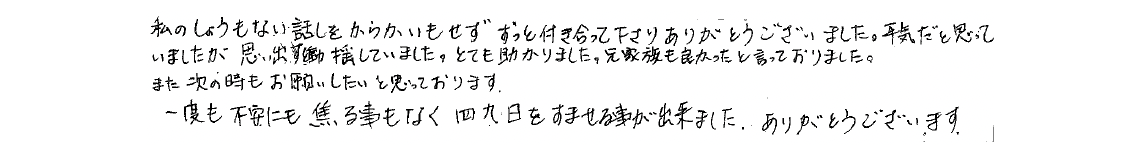 私のしょうもない話しをからかいもせずずっと付き合って下さりありがとうございました。平気だと思って
いましたが思い出す動揺していました。とても助かりました。元家族も良かったと言っておりました。
また次の時もお願いしたいと思っております。
一度も不安にも焦る事もなく四九日をすませる事が出来ました。ありがとうございます